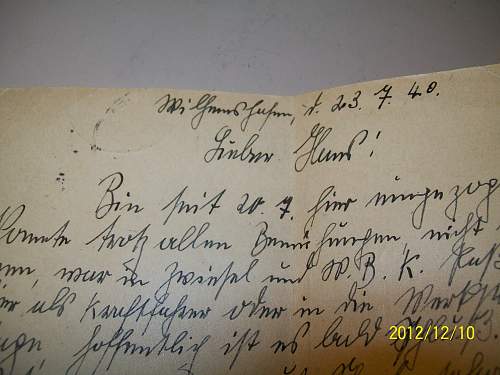 Wilhelmshafen, d. 23. 7. 40.
Lieber Hans!
Bin seit 20. 7. hier eingezog
konnte trotz allen Bemühungen, nicht
war in Zwiesel und W. B. K.
er als Kraftfahrer oder in die
hoffentlich ist es bald Schluß.
2012/12/10